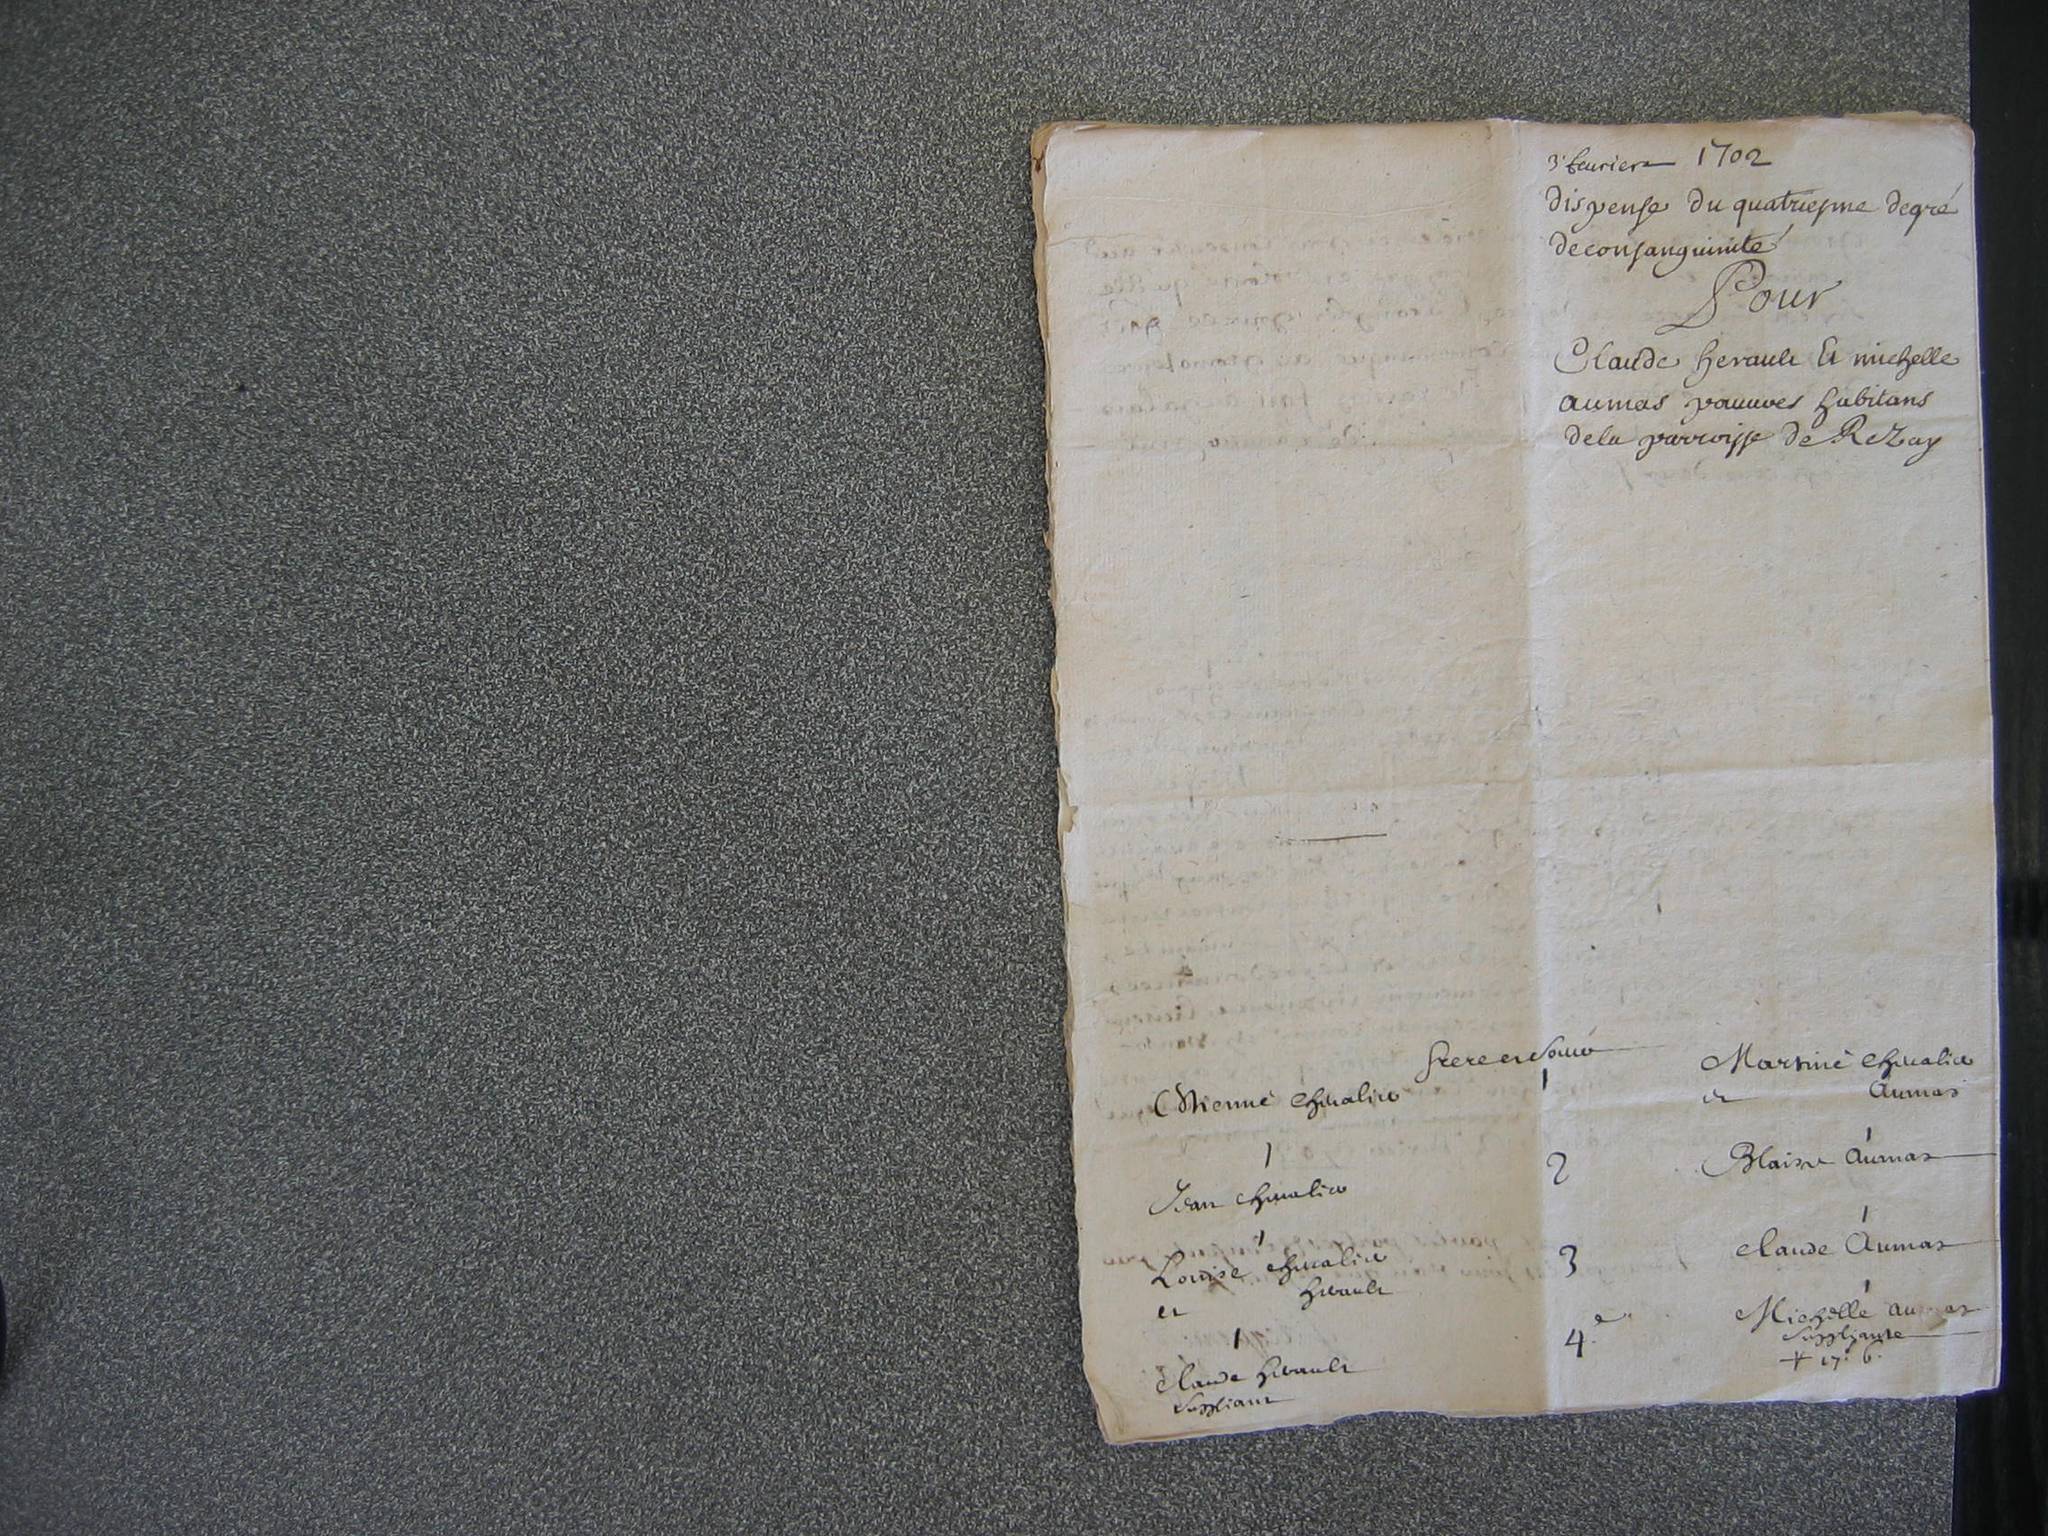 3 feurier 1702
dispense du quatriesme degré
de consanguinité
Pour
Claude herault Et michelle
aumas pauures habitans
de la parroisse de Rezay
frere et soeur
Etienne chevalier 1 Martine chevalier
et Aumas
1 1
Jean chevalier 2 Blaise Aumas
1 1
Louise chevalier 3 Claude Aumas
et herault
1 1
Claude herault 4e Michelle aumas
suppliant suppliante
17 6